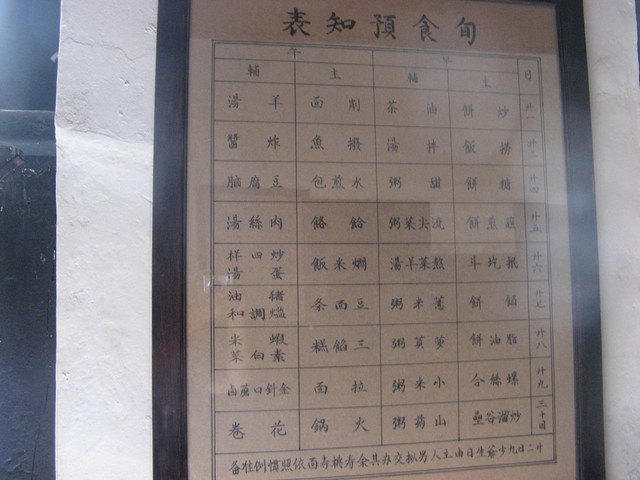 旬食預知表
日 早 午
主 輔 主 輔
廿一 炒餅 油茶 削面 羊湯
撈飯 拌湯 撥魚 炸醬
廿四 糖餅 甜粥 水煎包 豆腐脑
廿五 煎餅 流尖菜粥 餄餎 肉絲湯
廿六 根圪斗 熬菜羊湯 燜米飯 炒四样
蛋湯
廿七 餡餅 蔥米粥 豆面条 豬油
調和
廿八 脂油餅 萝蔔粥 三餡糕 蝦米
素菜
廿九 螺絲合 小米粥 拉面 金針口
三十日 炒溜谷壘 山药粥 火鍋 花卷
廿二日九少爺生日由主人另拟交办其余寿桃寿面依照慣例准备